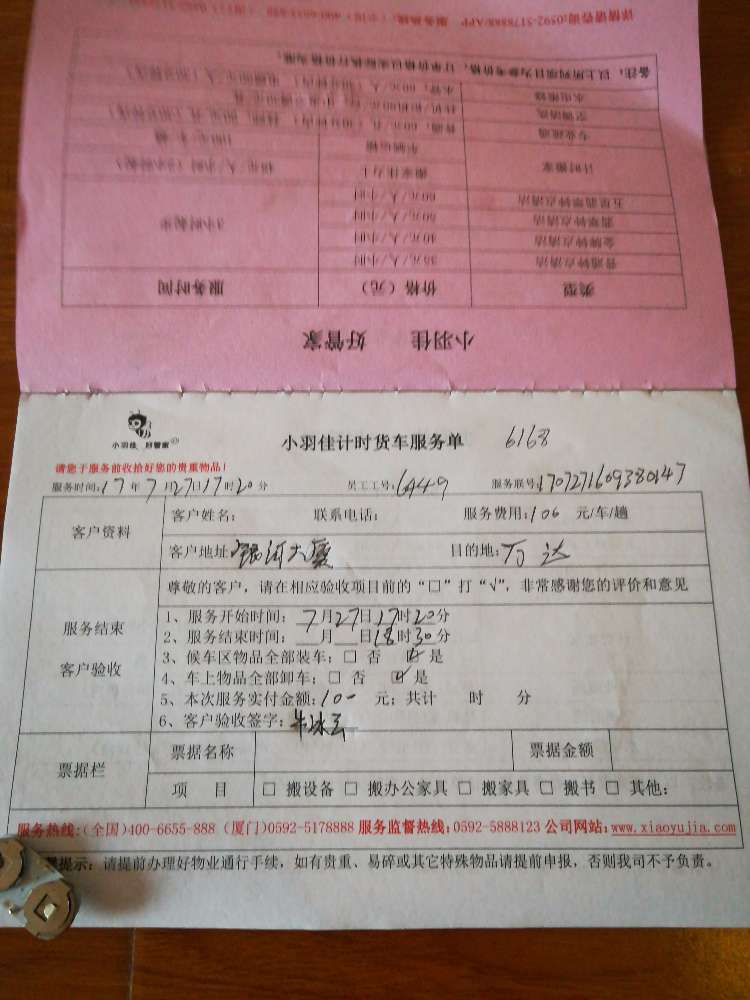 详情咨询:0592-5178888/APP
服务热线:
备注:以上所列项目为参考价格,订单价格以实际执行价格为准。
水电维修
水管:60元/人(30分钟内)
空调清洗
专业疏通
普通:60元/孔(30分钟内)
计时搬家
搬家佳力士
车辆运输
45元/人/小时(2小时起)
五星翡翠钟点清洁
60元/人/小时
翡翠钟点清洁
50元/人/小时
金牌钟点清洁
40元/人/小时
普通钟点清洁
35元/人/小时
3小时起步
类型 价格(元) 服务时间
小羽佳 好管家
小羽佳 好管家
小羽佳计时货车服务单 6168
请您于服务前收拾好您的贵重物品!
服务时间:17年7月27日17时20分 员工工号:6A449 服务联号:1707271609380147
客户资料
客户姓名: 联系电话: 服务费用:106 元/车/趟
客户地址:银河大厦 目的地:万达
服务结束
客户验收
尊敬的客户,请在相应验收项目前的“□”打“√”,非常感谢您的评价和意见
1、服务开始时间:7月27日17时20分
2、服务结束时间: 月 日18时30分
3、候车区物品全部装车:□ 否 ☑ 是
4、车上物品全部卸车:□ 否 ☑ 是
5、本次服务实付金额:10- 元;共计 时 分
6、客户验收签字:
票据栏
票据名称 票据金额
项 目 □ 搬设备 □ 搬办公家具 □ 搬家具 □ 搬书 □ 其他:
服务热线:(全国)400-6655-888 (厦门)0592-5178888 服务监督热线:0592-5888123 公司网站:www.xiaoyujia.com
提示:请提前办理好物业通行手续,如有贵重、易碎或其它特殊物品请提前申报,否则我司不予负责。